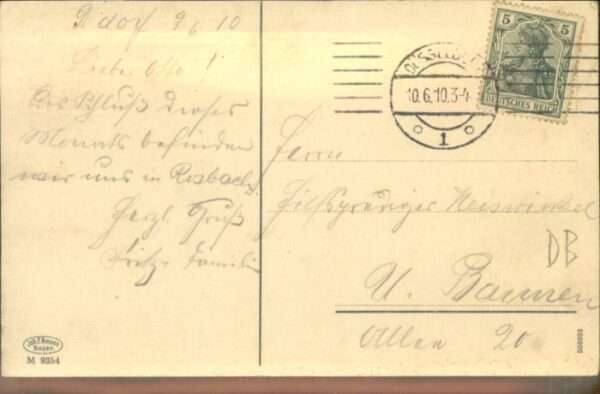 D'dorf 9/6 10
Liebe Otto!
Am Schluß dieses
Monats befinden
wir uns in Rosbach.
Herzl. Gruß
Fritz Familie
DÜSSELDORF
10.6.10.3-4
1
5 5
DEUTSCHES REICH
Herrn
Heiswinkel
U. Barmen
Allee 20
DB
M 9354